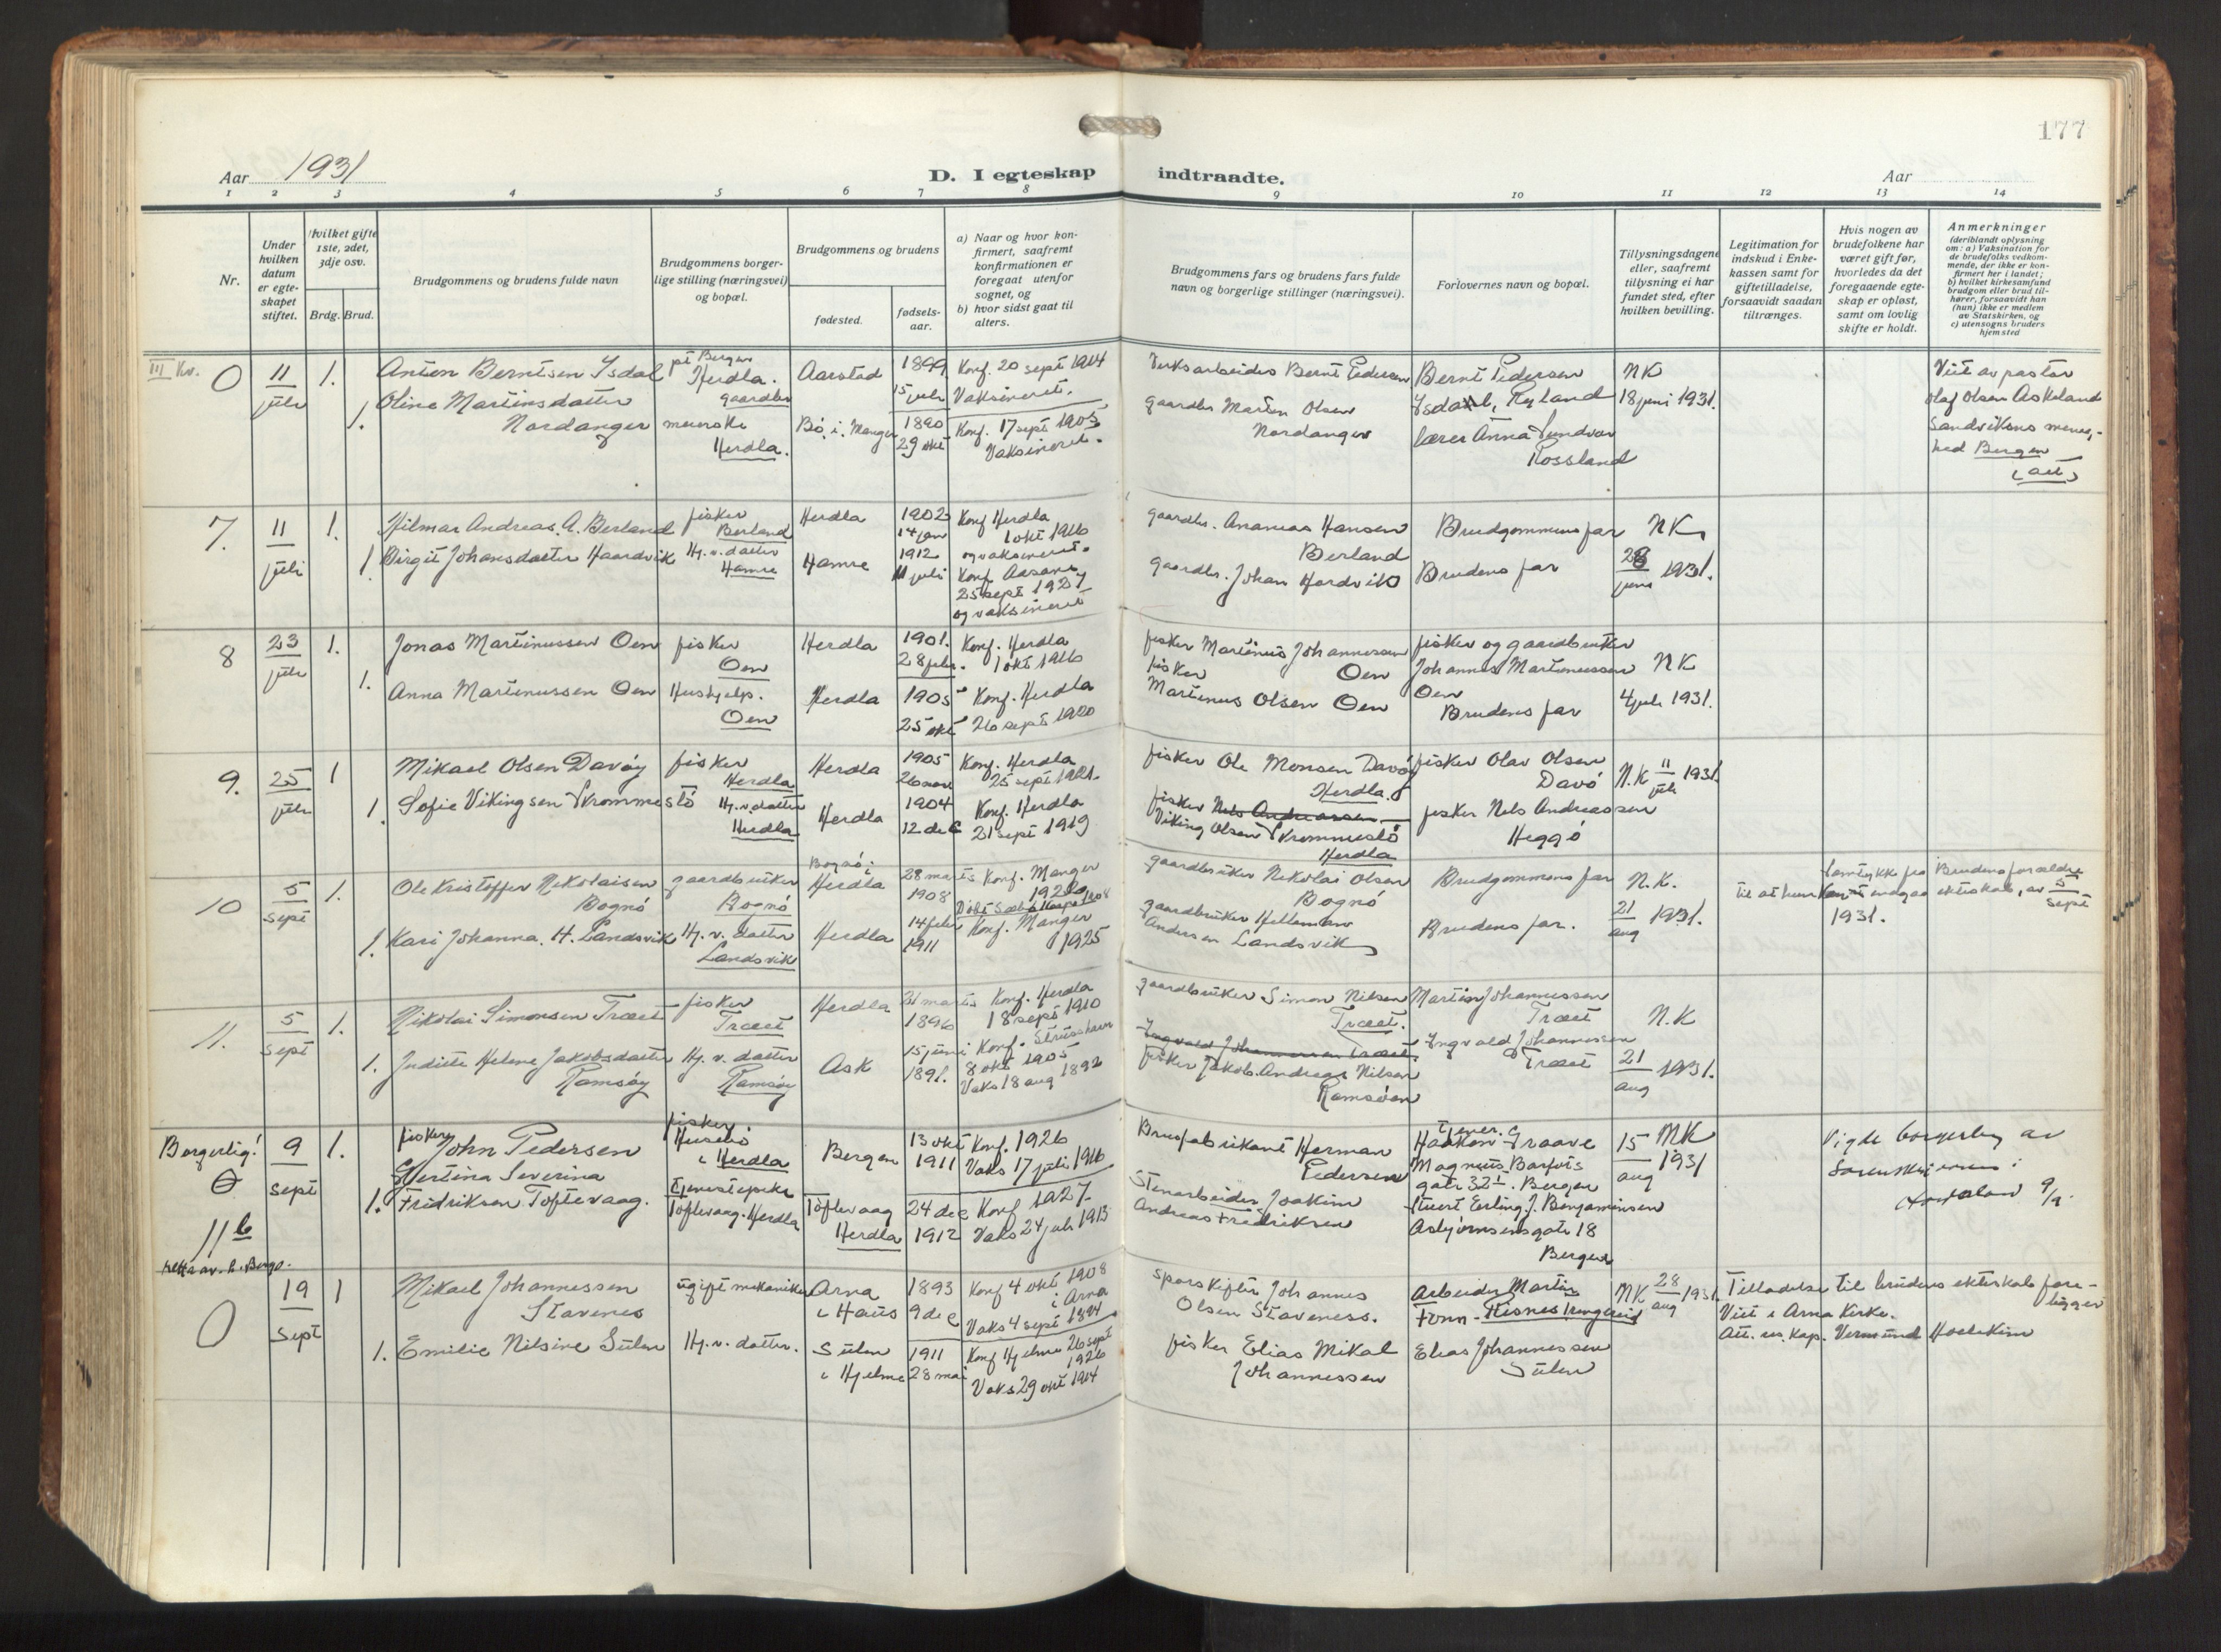 177
Aar 1931
D. I egteskap indtraadte.
Aar
1 2 3 4 5 6 7 8 9 10 11 12 13 14
Nr.
Under
hvilken
datum
er egte-
skapet
stiftet.
Hvilket gifte
1ste, 2det,
3dje osv.
Brdg. Brud.
Brudgommens og brudens fulde navn
Brudgommens borger-
lige stilling (næringsvei)
og bopæl.
Brudgommens og brudens
fødested.
fødsels-
aar.
a) Naar og hvor kon-
firmert, saafremt
konfirmationen er
foregaat utenfor
sognet, og
b) hvor sidst gaat til
alters.
Brudgommens fars og brudens fars fulde
navn og borgerlige stillinger (næringsvei).
Forlovernes navn og bopæl.
Tillysningsdagene
eller, saafremt
tillysning ei har
fundet sted, efter
hvilken bevilling.
Legitimation for
indskud i Enke-
kassen samt for
giftetilladelse,
forsaavidt saadan
tiltrænges.
Hvis nogen av
brudefolkene har
været gift før,
hvorledes da det
foregaaende egte-
skap er opløst,
samt om lovlig
skifte er holdt.
Anmerkninger
(deriblandt oplysning
om: a) Vaksination for
de brudefolks vedkom-
mende, der ikke er kon-
firmert her i landet;
b) hvilket kirkesamfund
brudgom eller brud til-
hører, forsaavidt han
(hun) ikke er medlem
av Statskirken, og
c) utensogns bruders
hjemsted
III Kv. 0
11
juli
1.
1.
Anton Berntsen Ysdal
Oline Martinsdatter
Nordanger
pt Bergen
Herdla.
gaardbr
meierske
Herdla.
Aarstad
Bö i Manger
1899
15 juli
1890
29 okt
Konf. 20 sept 1914
Vaksineret.
Konf. 17 sept 1905
Vaksineret.
Verksarbeider Bernt Pedersen
gaardbr Martin Olsen
Nordanger
Bernt Pedersen
Ysdal,
lærer Anna
Rossland
NK
18 juni 1931.
Viet av pastor
Olaf Olsen Askeland
Sandvikens menig-
hed Bergen
(att)
7.
11
juli
1.
1
Hilmar Andreas A. Berland
Birgit Johansdatter Haardvik
fisker
Berland
Hj. v. datter
Hamre
Herdla
Hamre
1902
14 jan
1912
11 juli
Konf Herdla
1 okt 1916
og vaksineret.
Konf Aasane
25 sept 1927
og vaksineret
gaardbr. Ananias Hansen
Berland
gaardbr. Johan Hordvik
Brudgommens far
Brudens far
NK
28
juni 1931.
8
23
juli
1.
1.
Jonas Martinussen Oen
Anna Martinussen Oen
fisker
Oen
Hushjelp.
Oen
Herdla
Herdla
1901.
28 febr.
1905
25 okt
Konf. Herdla
1 okt 1916
Konf. Herdla
26 sept 1920
fisker Martinus Johannesen
Oen
fisker
Martinus Olsen Oen
fisker og gaardbruker
Johannes Martinussen
Oen
Brudens far
NK
4 juli 1931.
9.
25
juli
1
1.
Mikael Olsen Davöy
Sofie Vikingsen Skrommestö
fisker
Herdla
Hj. v. datter
Herdla
Herdla
Herdla
1905
26 nov
1904
12 dec
Konf. Herdla
25 sept 1921.
Konf. Herdla
21 sept 1919
fisker Ole Monsen Davöy
Herdla.
fisker Nels Andreassen
Viking Olsen Skrommestö
Herdla
fisker Olav Olsen
Davö
fisker Nels Andreassen
Heggö
N.K 11
juli 1931
10
5
sept
1.
1.
Ole Kristoffer Nikolaisen
Bognö
Kari Johanna. H. Landsvik
gaardbruker
Bognö
Hj. v. datter
Landsvik
Bognö i
Herdla
Herdla
28 marts
1908
14 febr
1911
Konf. Manger
Konf. Manger
1925
gaardbruker Nikolai Olsen
Bognö
gaardbruker
Andersen Landsvik
Brudgommens far
Brudens far.
N.K.
21
aug 1931.
Samtykke fra Brudens foraldre
til at hun kan indgaa ekteskab, av 5
sept
1931.
11.
5
sept
1.
1.
Nikolai Simonsen Træet
Judith Helene Jakobsdatter
Ramsöy
fisker
Træet
Hj. v. datter
Ramsöy
Herdla
Ask
21 marts
1896
15 juni
1891.
Konf. Herdla
18 sept 1910
Konf. Strusshavn
8 okt 1905
Vaks 18 aug 1892
gaardbruker Simon Nilsen
Træet.
Ingvald Johannessen Træet.
fisker Jakob Andreas Nilsen
Ramsöen
Martin Johannessen
Træet
Ingvald Johannessen
Træet
N.K
21
aug 1931.
Borgerlig!
0
11 b
9
sept
1.
1.
fisker John Pedersen
Gjertina Severina
Fridriksen Toftevaag.
fisker
i Herdla
tjenestepike
Toftevaag. Herdla
Bergen
Toftevaag
Herdla
13 okt
1911
24 dec
1912
Konf. 1926
Vaks 17 juli 1916
Konf 1927.
Vaks 24 juli 1913
Brusfabrikant Herman
Pedersen
Stenarbeider Joakim
Andreas Fridriksen
Haakon Traave
Magnus Barfots
gate 32 I. Bergen
Stuert Erling J. Benjaminsen
Asbjörnsensgate 18
Bergen
15 MK
aug 1931
Vigde borgerleg av
Sorenskrivaren i
9/9.
0
19
sept
1
1.
Mikael Johannessen
Stavenes
Emilie Nilsine Sulen
ugift mekaniker
Hj. v. datter.
Arna
i Haus
Sulen
i Hjelme
1893
9 dec
1911
28 mai
Konf 4 okt 1908
i Arna
Vaks 4 sept 1894
Konf Hjelme 26 sept
1926
Vaks 29 okt 1914
sporskifter Johannes
Olsen Stavenes.
fisker Elias Mikal
Johannessen
Arbeider Martin
Elias Johannessen
Sulen
NK 28
aug 1931
Tilladelse til brudens ekteskab fore-
ligger
Viet i Arna Kirke.
Att. res. kap. Vermund Hoelekim